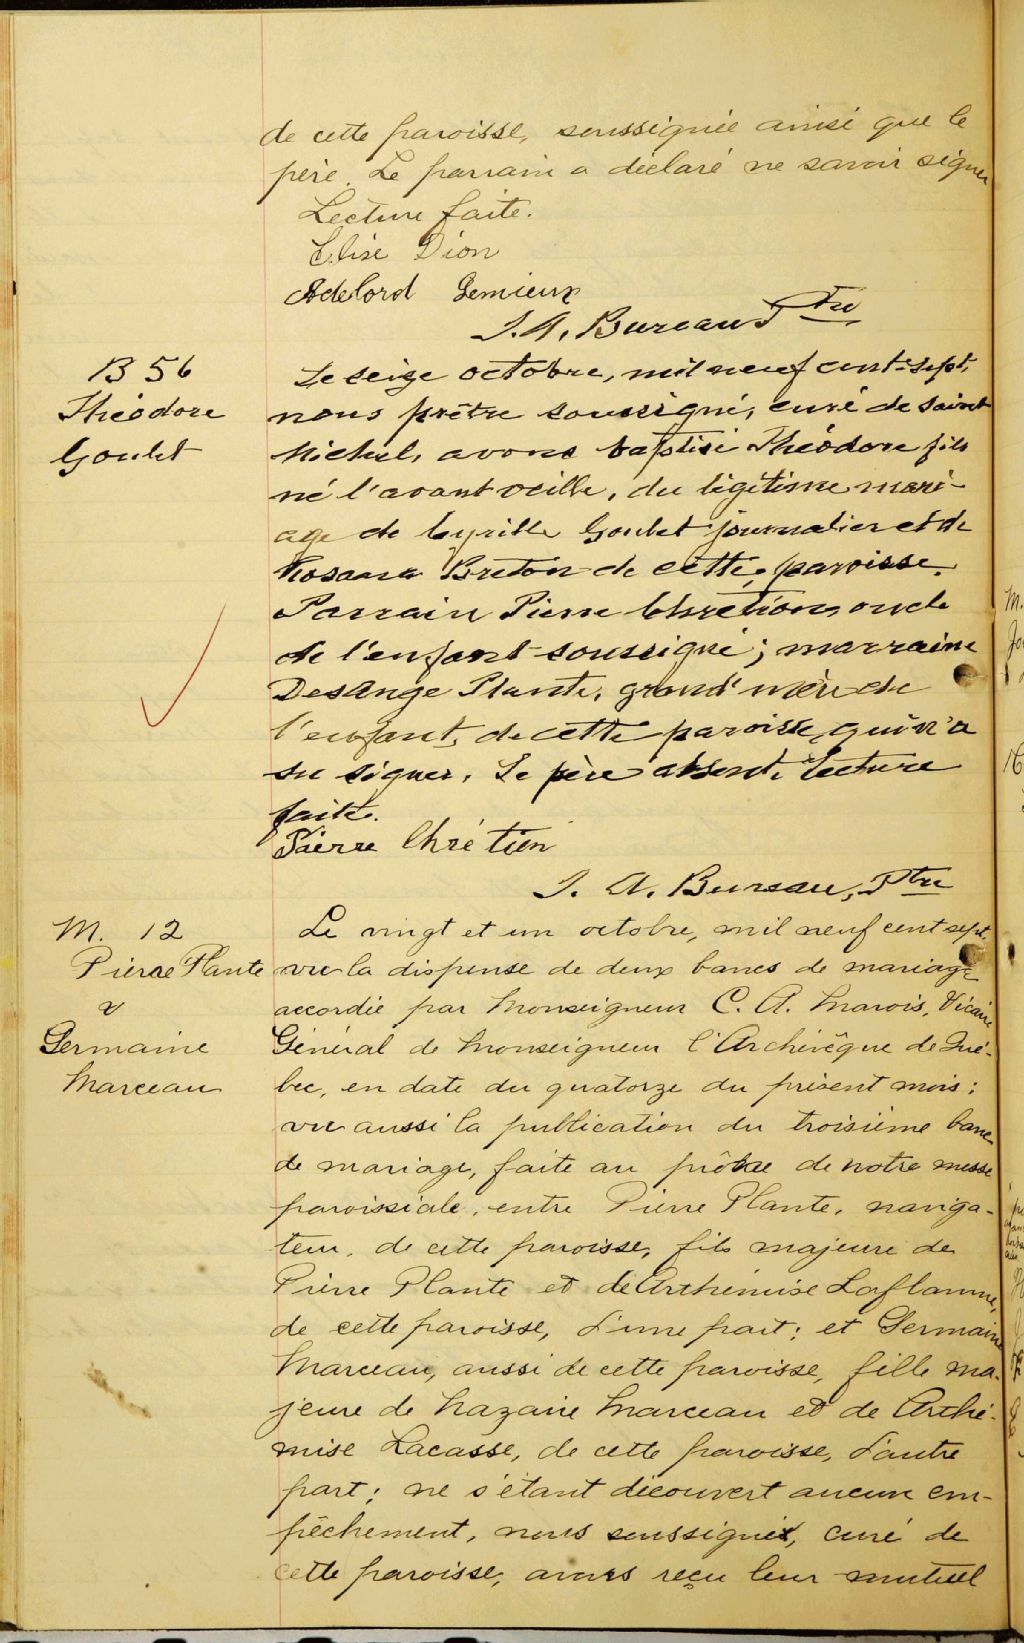 de cette paroisse, soussignée ainsi que le
père. Le parrain a déclaré ne savoir signer
Lecture faite.
Elise Dion
Adelard Lemieux
J. A. Bureau Ptre
B 56
Théodore
Goulet
Le seize octobre, mil neuf cent-sept,
nous prêtre soussigné, curé de Saint
Michel, avons baptisé Théodore fils
né l'avant veille, du légitime mari-
age de Cyrille Goulet journalier et de
Rosanna Breton de cette paroisse.
Parrain Pierre Chrétien, oncle
de l'enfant soussigné; marraine
DesAnge Plante, grand'mère de
l'enfant, de cette paroisse, qui n'a
su signer. Le père absent. Lecture
faite.
Pierre Chrétien
J. A. Bureau, Ptre
M. 12
Pierre Plante
&
Germaine
Marceau
Le vingt et un octobre, mil neuf cent sept,
vu la dispense de deux bancs de mariage
accordée par Monseigneur C. A. Marois, Vicaire
Général de Monseigneur l'Archevêque de Qué-
bec, en date du quatorze du présent mois;
vu aussi la publication du troisième banc
de mariage, faite au prône de notre messe
paroissiale, entre Pierre Plante, naviga-
teur, de cette paroisse, fils majeure de
Pierre Plante et de Arthémise Laflamme,
de cette paroisse, d'une part; et Germaine
Marceau, aussi de cette paroisse, fille ma-
jeure de Nazaire Marceau et de Arthé-
mise Lacasse, de cette paroisse, d'autre
part; ne s'étant découvert aucun em-
pêchement, nous soussigné, curé de
cette paroisse, avons reçu leur mutuel